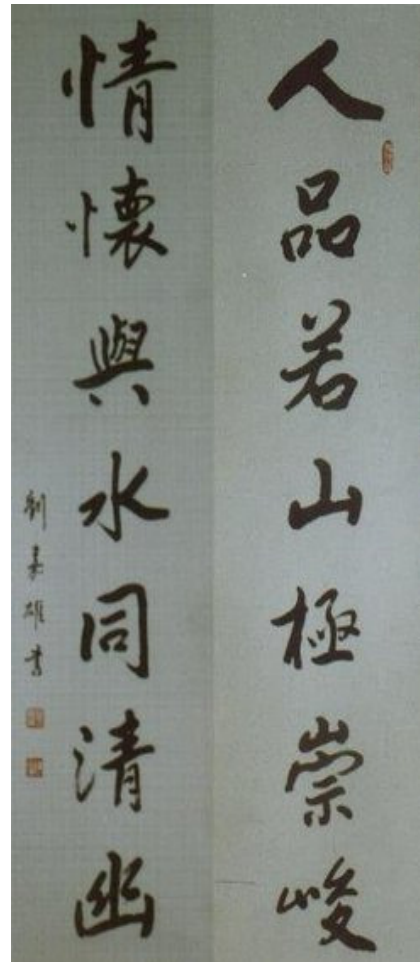 人品若山極崇峻
情懷與水同清幽
劉嘉雄書